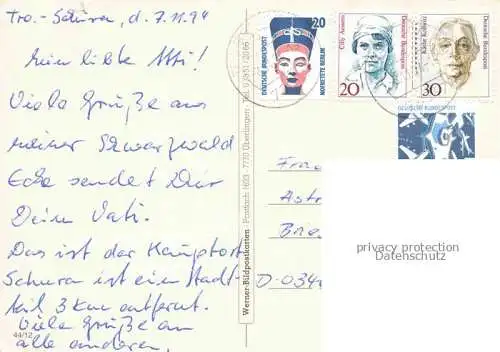 Tro.-Schura, d. 7.11.94
Mein liebe
Viele Grüße aus
meiner Schwarzwald
Ecke sendet Dir
Dein Vati.
Das ist der Hauptort
Schura ist ein Stadt-
teil 3 km entfernt.
Viele Grüße an
alle anderen.
44/12
Werner-Bildpostkarten · Postfach 1603 · 7770 Überlingen · Tel. 07551/2066
20
DEUTSCHE BUNDESPOST
NOFRETETE BERLIN
Cilly Aussem
Deutsche Bundespost
20
Käthe Kollwitz
Deutsche Bundespost
30
DEUTSCHE BUNDESPOST
Astr
D-034
privacy protection
Datenschutz